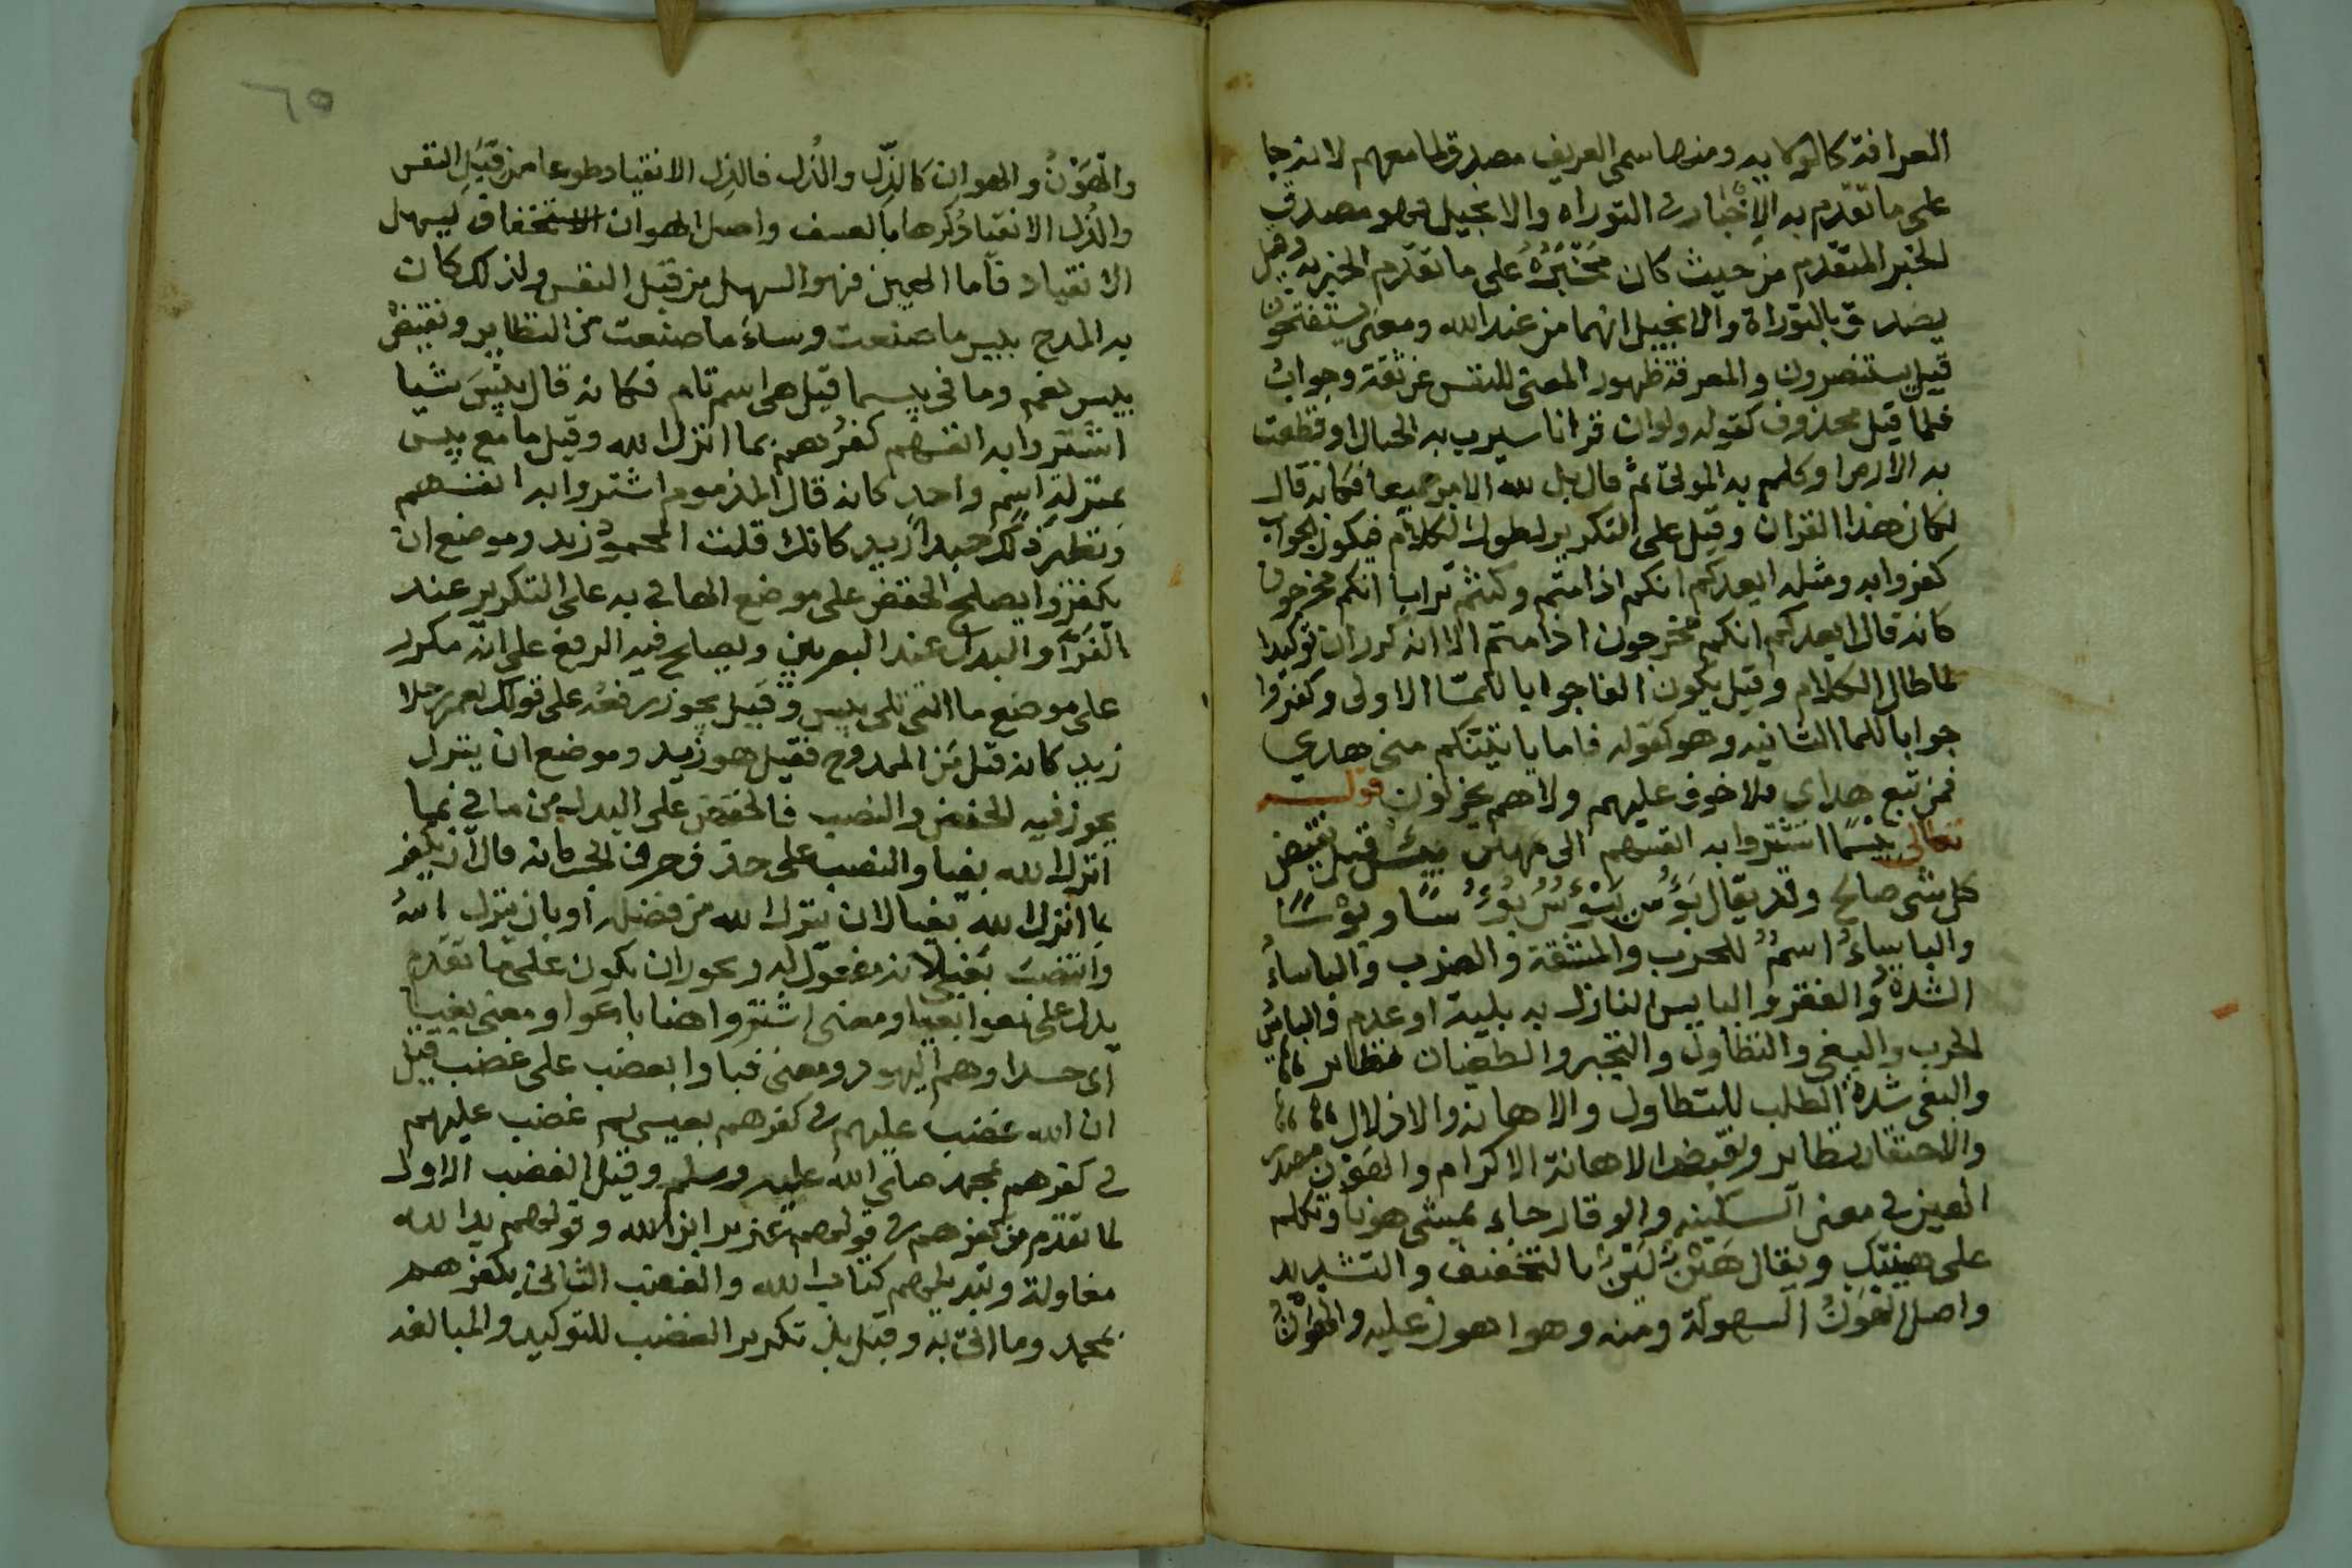 العرافة كالوكايه ومنها سمي العريف مصدق لما معهم لانه جا
على ما تقدم به الاخبار في التوراه والانجيل فهو مصدق
للخبر المتقدم من حيث كان مخبره على ما تقدم الخبر به وقيل
يصدق بالتوراة والانجيل انهما من عند الله ومعنى يستفتحون
قيل يستنصرون والمعرفة ظهور المعنى للنفس عن ثقة وجواب
فلما قيل محذوف كقوله ولو ان قرانا سيرت به الجبال او قطعت
به الارض او كلم به الموتى ثم قال بل لله الامر جميعا فكانه قال
لكان هذا القران وقيل على التكرير لطول الكلام فيكون الجواب
كفروا به ومثله ايعدكم انكم اذا متم وكنتم ترابا انكم مخرجون
كانه قال ايعدكم انكم مخرجون اذا متم الا انه كرر ان توكيدا
لما طال الكلام وقيل يكون الفا جوابا للما الاولى وكفروا
جوابا للما الثانيه وهو كقوله فاما ياتينكم مني هدي
فمن تبع هداي فلا خوف عليهم ولا هم يحزنون قولــه
تعالى بيسما اشتروا به انفسهم الى مهين بيس قيل نقيض
كل شي صالح وقد يقال بؤس يبؤس بؤسا وبؤسا
والباساء اسم للحرب والمشقة والضرب والباساء
الشدة والفقر والبايس النازل به بلية او عدم والباس
الحرب والبغي والتطاول والتجبر والطغيان نظاير
والبغي شدة الطلب للتطاول والاهانه والاذلال
والاحتقار نظاير ونقيض الاهانة الاكرام والهون مصدر
الهين في معنى السكينه والوقار جاء يمشي هونا وتكلم
على هينتك ويقال هين لين بالتخفيف والتشديد
واصل الهون السهولة ومنه وهو اهون عليه والهوان
٦٥
والهون والهوان كالذل والذل فالذل الانقياد طوعا من قبل النفس
والذل الانقياد كرها بالعسف واصل الهوان الاستخفاف ليسهل
الانقياد فاما الهين فهو السهل من قبل النفس ولذلك كان
به المدح بيس ما صنعت وساء ما صنعت من النظاير ونقيض
بيس نعم وما في بيسما قيل هي اسم تام فكانه قال بيس شيا
اشتروا به انفسهم كفرهم بما انزل الله وقيل ما مع بيس
بمنزلة اسم واحد كانه قال المذموم اشتروا به انفسهم
ونظير ذلك حبذا زيد كانك قلت المحمود زيد وموضع ان
يكفروا يصلح الخفض على موضع الها في به على التكرير عند
الفراء والبدل عند البصريين ويصلح فيه الرفع على انه مكرر
على موضع ما التي تلي بيس وقيل يجوز رفعه على قولك نعم رجلا
زيد كانه قيل من الممدوح فقيل هو زيد وموضع ان ينزل
يجوز فيه الخفض والنصب فالخفض على البدل من ما في بما
انزل الله بغيا والنصب على حذف حرف الجر كانه قال ان يكفر
بما انزل الله بغيا لان ينزل الله من فضله او بان ينزل الله
وانتصب بغيا لانه مفعول له ويجوز ان يكون على ما تقدم
يدل على بغوا بغيا ومعنى اشتروا هنا باعوا ومعنى بغيا
اي حسدا وهم اليهود ومعنى فباوا بغضب على غضب قيل
ان الله غضب عليهم في كفرهم بعيسى ثم غضب عليهم
في كفرهم بمحمد صلى الله عليه وسلم وقيل الغضب الاول
لما تقدم من كفرهم في قولهم عزير ابن الله وقولهم يد الله
مغلولة وتبديلهم كتاب الله والغضب الثاني بكفرهم
بمحمد وما اتى به وقيل بل تكرير الغضب للتوكيد والمبالغه